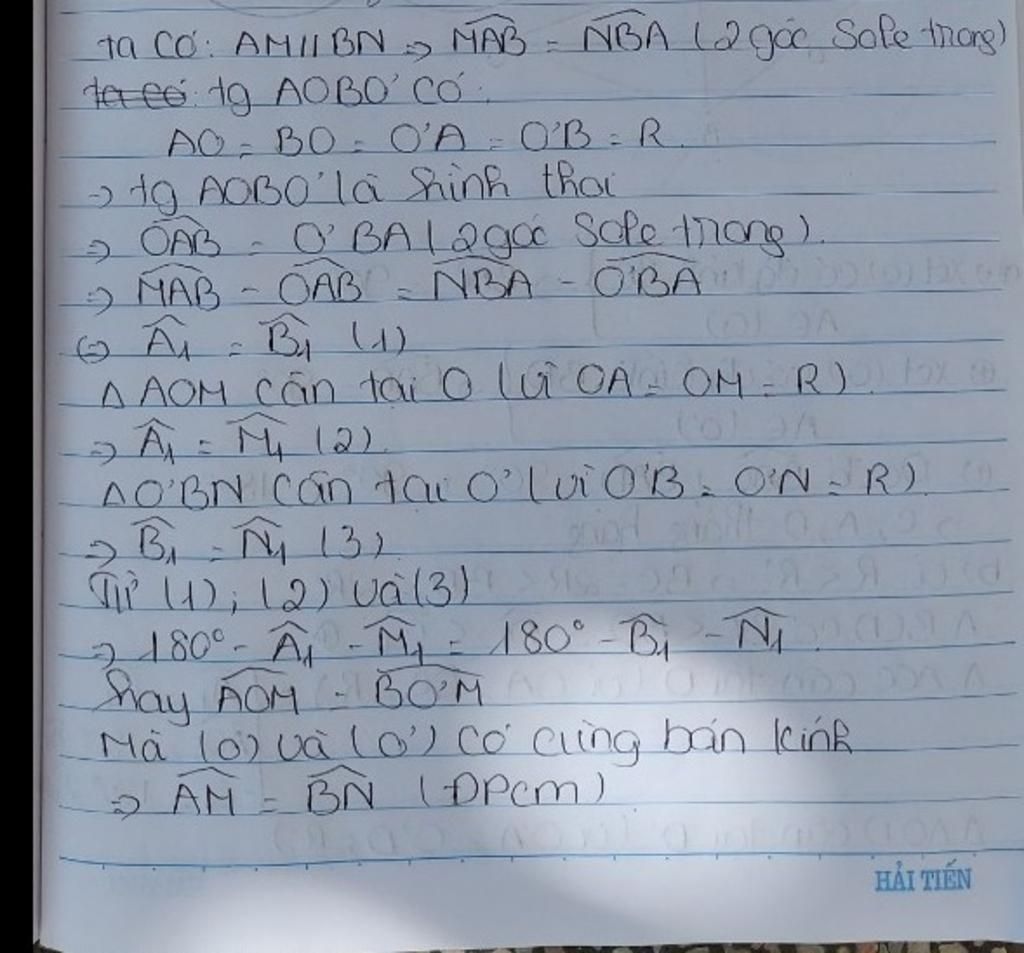 ta có: AM//BN => MAB = NBA (2 góc Sole trong)
ta có: tg AOBO' có:
AO = BO = O'A = O'B = R.
-> tg AOBO' là hình thoi
=> OAB = O'BA (2 góc Sole trong).
=> MAB - OAB = NBA - O'BA
<=> A1 = B1 (1)
Δ AOM cân tại O (vì OA = OM = R)
=> A1 = M1 (2).
ΔO'BN cân tại O' (vì O'B = O'N = R)
=> B1 = N1 (3)
Từ (1); (2) và (3)
=> 180° - A1 - M1 = 180° - B1 - N1.
hay AOM = BO'M
Mà (O) và (O') có cùng bán kính
=> AM = BN (ĐPcm)
HẢI TIẾN